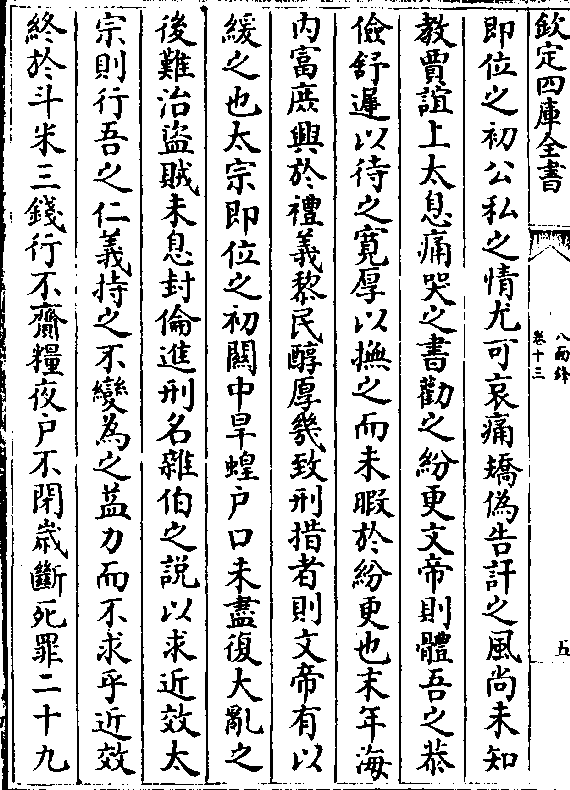 欽定四庫全書
八面鋒
卷十三
五
即位之初公私之情尤可哀痛矯偽告訐之風尚未知
教賈誼上太息痛哭之書勸之紛更文帝則體吾之恭
儉舒遲以待之寛厚以撫之而未暇於紛更也末年海
内富庶興於禮義黎民醇厚幾致刑措者則文帝有以
緩之也太宗即位之初闗中旱蝗户口未盡復大亂之
後難治盜賊未息封倫進刑名雜伯之説以求近效太
宗則行吾之仁義持之不變為之益力而不求乎近效
終於斗米三錢行不齎糧夜户不閉嵗斷死罪二十九